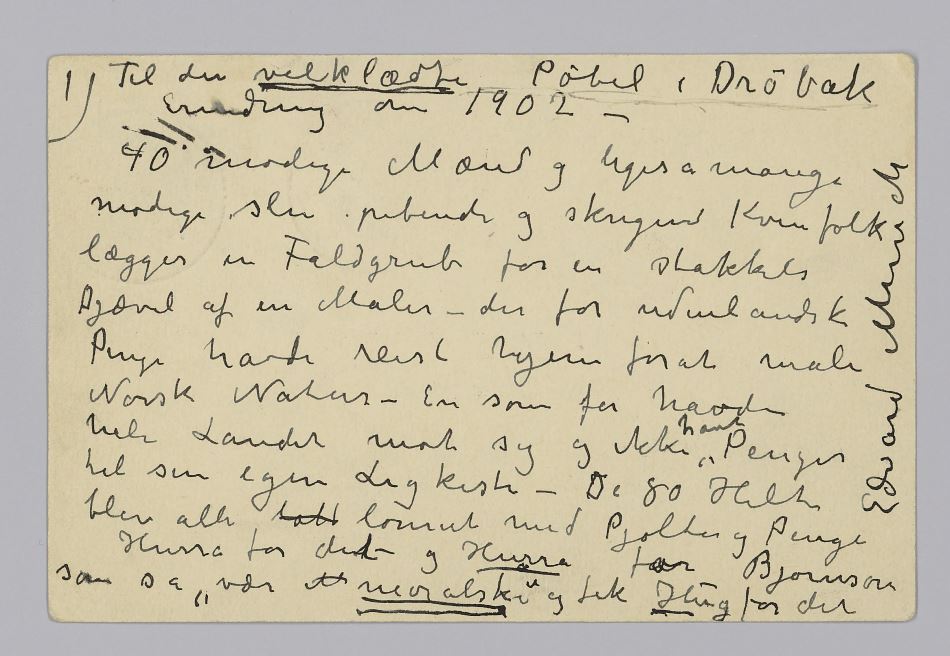 1) Til den velklædte Pöbel i Dröbak
Erindring om 1902 –
40 modige Mænd og ligesa mange
modige slu pibende og skrigend Kvinfolk
lægger en Faldgrube for en stakkels
Djævel af en Maler – der for udenlandske
Penge havde reist hjem forat male
Norsk Natur – En som før havde
hele Landet mot sig og ikke „havt Penger
til sin egen Ligkiste – De 80 Helte
blev alle lönnet med Pjolter og Penge
Hurra for det – og Hurra for Bjørnson
som sa „vær moralske" og fik Hug for det
Edvard Munch